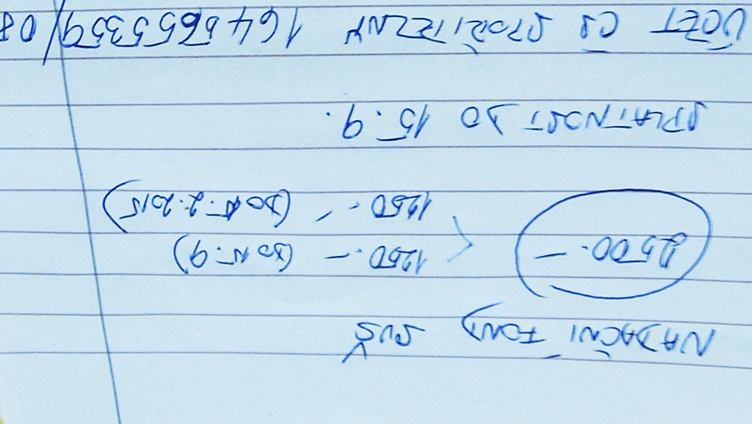 NADAČNÍ FOND SUŠ
2500.- < 1250.- (DO 15.9)
1250.- (DO 15.2.2015)
SPLATNOST DO 15.9.
ÚČET ČS SPOŘITELNY 1645655359/08